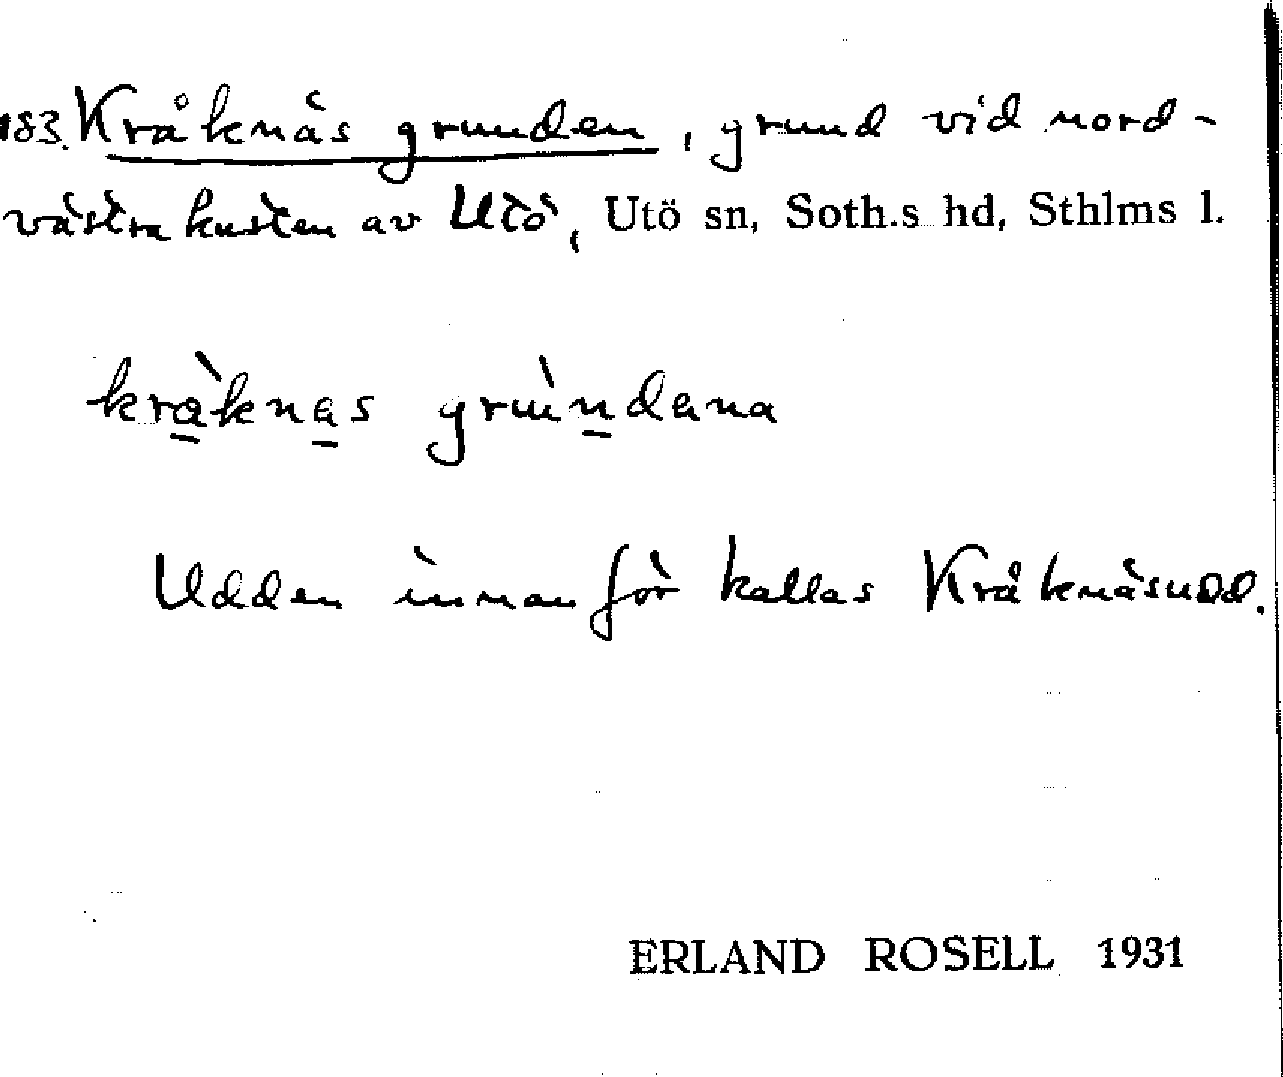 183. Kråknäs grunden, grund vid nord-
västra kusten av Utö, Utö sn, Soth.s hd, Sthlms l.
krà̱kna̱s grùṉdana
Udden innanför kallas Kråknäsudd.
ERLAND ROSELL 1931